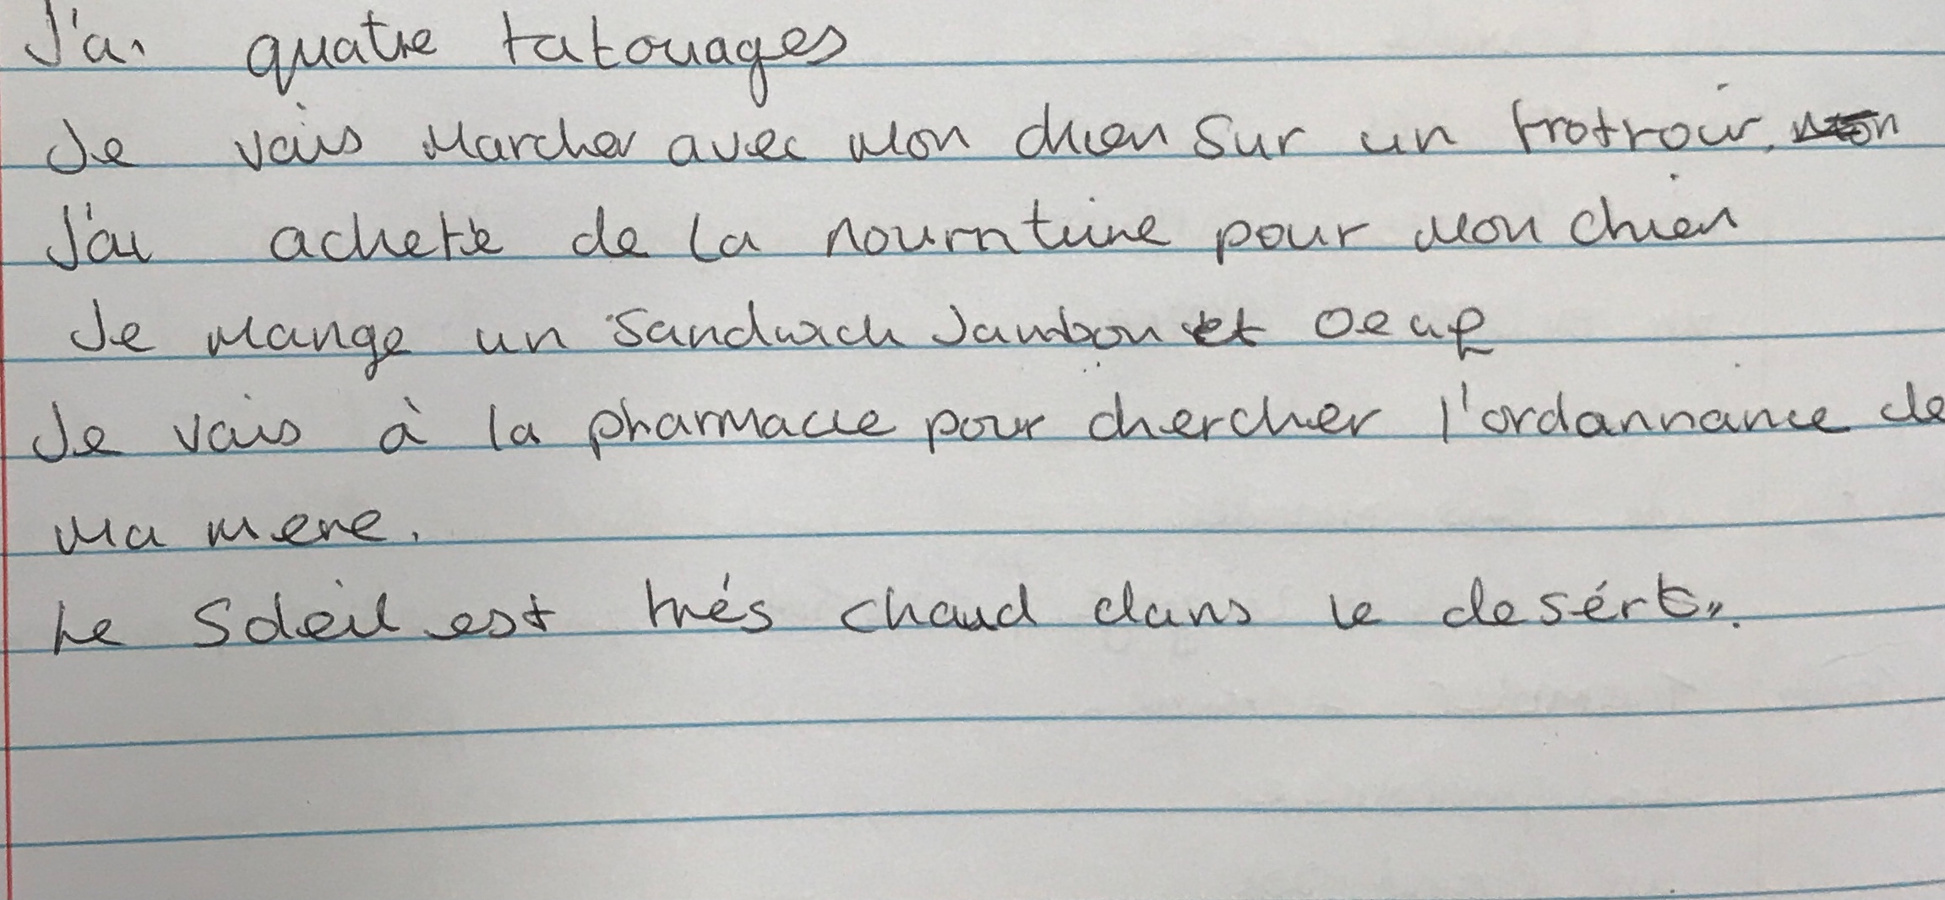 J'ai quatre tatouages
Je vais marcher avec mon chien sur un trotroir.
J'ai achette de la nourriture pour mon chien
Je mange un sandwich Jambon et oeuf
Je vais à la pharmacie pour chercher l'ordannance de
ma mere.
Le Soleil est trés chaud dans le desért.